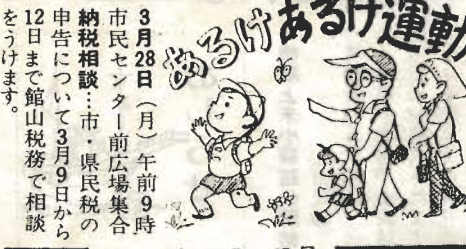 あるけあるけ運動
3月28日（月）午前9時
市民センター前広場集合
納税相談…市・県民税の
申告について3月9日から
12日まで館山税務で相談
をうけます。